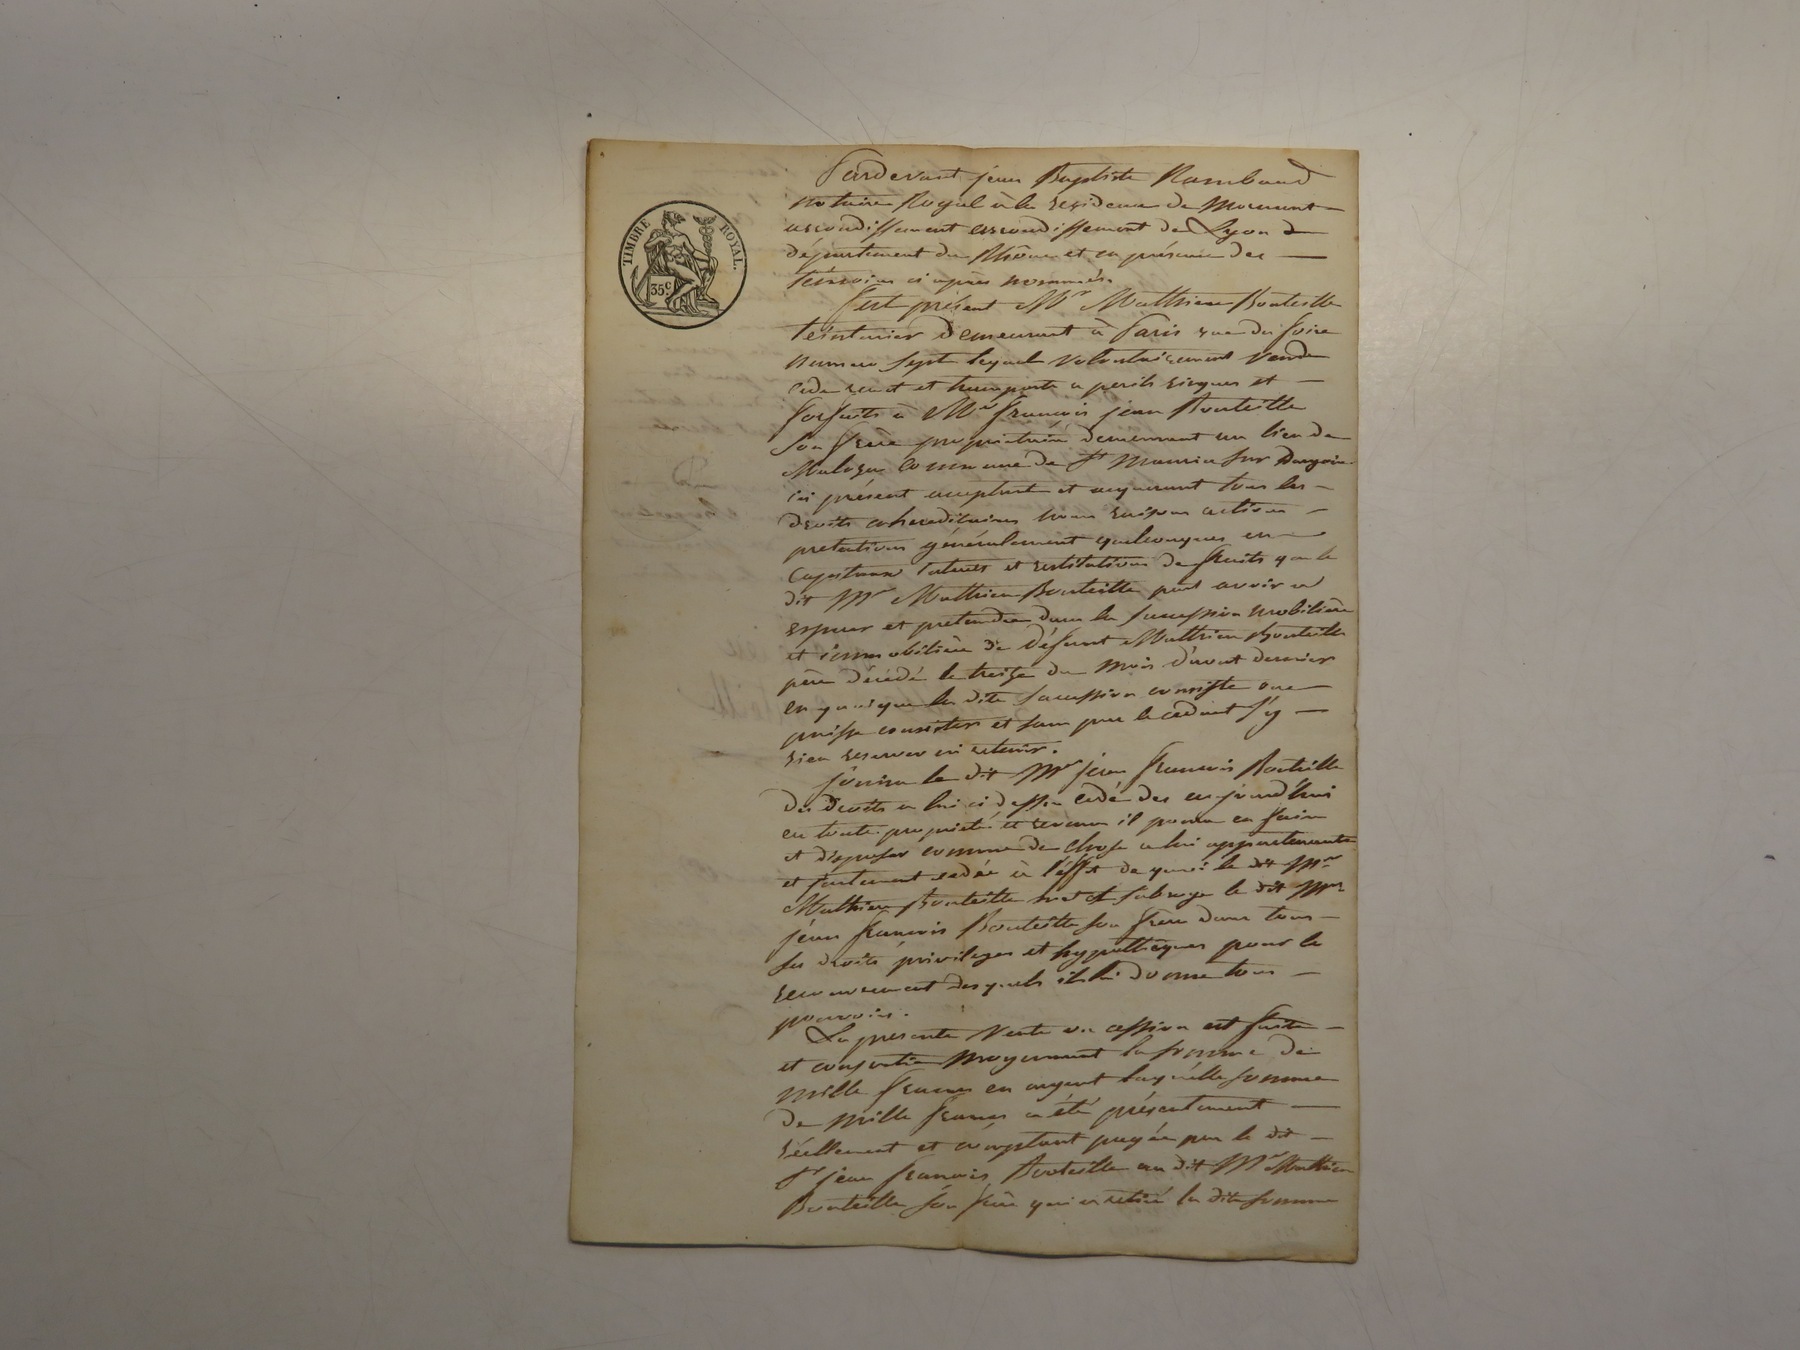 TIMBRE ROYAL.
35c
Pardevant jean Baptiste Rambaud
notaire Royal à la residence de Mornant
arrondissement arrondissement de Lyon
département du Rhône et en présence des
témoins ci après nommés.
Est présent Mr Mathieu Bouteille
teinturier demeurant à Paris rue du foire
numero sept lequel volontairement vend
cede remet et transporte a perils risques et
forfaits à Mr francois jean Bouteille
son frere propriétaire demeurant au lieu de
commune de St Maurice sur Dargoire
ici présent acceptant et acquerant tous les
droits cohereditaires noms raisons actions
pretentions généralement quelconques en
capitaux interets et restitutions de fruits que le
dit Mr Mathieu Bouteille peut avoir a
esperer et pretendre dans la succession mobilière
et immobilière de défunt Mathieu Bouteille
père décédé le treize du mois d'avout dernier
en quoi que la dite succession consiste ou
puisse consister et sans par le cedant s'y
rien reserver ni retenir.
jouira le dit Mr jean francois Bouteille
des droits a lui ci dessu cedé des aujourd'hui
en toute propriété et revenu il pourra en faire
et disposer comme de chose a lui appartenante
et justement cedée à l'effet de quoi le dit Mr
Mathieu Bouteille met et subroge le dit Mr
jean francois Bouteille son frere dans tous
ses droits privileges et hypothèques pour le
recouvrement desquels il lui donne tous
pouvoirs.
La presente vente ou cession est faite
et consentie moyennant la somme de
mille francs en argent laquelle somme
de mille francs a été présentement
réellement et comptant payée par le dit
Sr jean francois Bouteille au dit Mr Mathieu
Bouteille son frère qui a retiré la dite somme